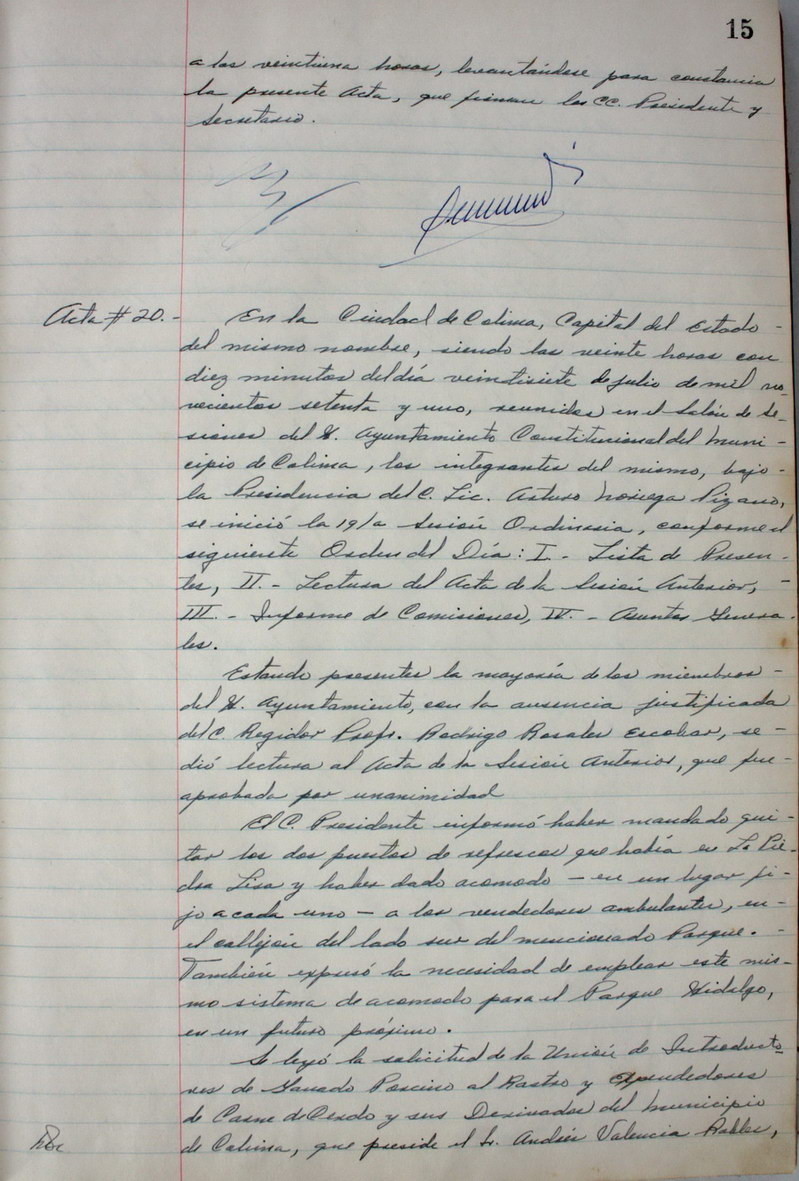 15
a las veintiuna horas, levantándose para constancia
la presente Acta, que firman los CC. Presidente y
Secretario.
Acta # 20.-
En la Ciudad de Colima, Capital del Estado -
del mismo nombre, siendo las veinte horas con
diez minutos del día veintisiete de julio de mil no-
vecientos setenta y uno, reunidos en el Salón de Se-
siones del H. Ayuntamiento Constitucional del Muni-
cipio de Colima, los integrantes del mismo, bajo -
la Presidencia del C. Lic. Arturo Noriega Pizano,
se inició la 19/a Sesión Ordinaria, conforme al
siguiente Orden del Día: I.- Lista de Presen-
tes, II.- Lectura del Acta de la Sesión Anterior, -
III.- Informe de Comisiones, IV.- Asuntos Genera-
les.
Estando presentes la mayoría de los miembros -
del H. Ayuntamiento, con la ausencia justificada
del C. Regidor Profr. Rodrigo Rosales Escobar, se -
dió lectura al Acta de la Sesión Anterior, que fue -
aprobada por unanimidad
El C. Presidente informó haber mandado qui-
tar los dos puestos de refrescos que había en La Pie-
dra Lisa y haber dado acomodo - en un lugar fi-
jo a cada uno - a los vendedores ambulantes, en -
el callejón del lado sur del mencionado Parque. -
También expresó la necesidad de emplear este mis-
mo sistema de acomodo para el Parque Hidalgo,
en un futuro próximo.
Se leyó la solicitud de la Unión de Introducto-
res de Ganado Porcino al Rastro y Expendedores
de Carne de Cerdo y sus Derivados del Municipio
de Colima, que preside el Sr. Andrés Valencia Robles,